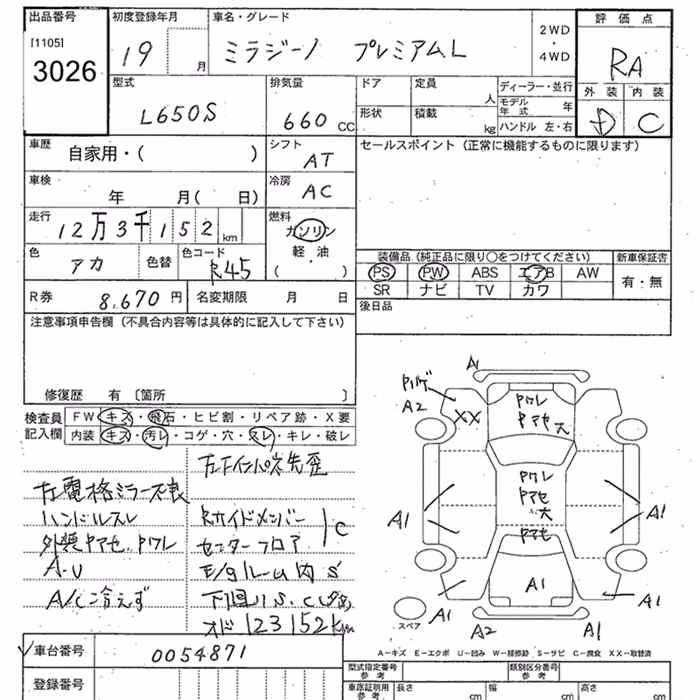 出品番号
[1105]
3026
初度登録年月
19 月
車名・グレード
ミラジーノ プレミアムL
2WD
・
4WD
評価点
RA
外装 内装
D C
型式
L650S
排気量
660 CC
ドア
形状
定員
人
積載
kg
ディーラー・並行
モデル年式 年
ハンドル 左・右
車歴
自家用・( )
シフト
AT
セールスポイント (正常に機能するものに限ります)
車検
年 月( 日)
冷房
AC
走行
12万3千152 km
燃料
ガソリン
軽・油
・
( )
色
アカ
色替
色コード
R45
装備品 (純正品に限り〇をつけてください)
新車保証書
PS PW ABS エアB AW
SR ナビ TV カワ
有・無
R券
8,670 円
名変期限 月 日
後日品
注意事項申告欄 (不具合内容等は具体的に記入して下さい)
修復歴 有 〔箇所 〕
検査員記入欄
FW キズ・飛石・ヒビ割・リペア跡・X要
内装 キズ・汚レ・コゲ・穴・スレ・キレ・破レ
左電格ミラー不良
ハンドルスレ
外装Pアセ、Pワレ
A・U
A/C冷えず
左Fインパネ先歪
Rサイドメンバー
センターフロア
C
E/gルーム内S
下廻りS、C
オド123152km
A1
A2
XX
Pワレ
Pアセ大
Pワレ
Pアセ
大
Pアセ
A1
A1
A1
A1
A1
A2
A1
スペア
A−キズ E−エクボ U−凹み W−補修跡 S−サビ C−腐食 XX−取替済
車台番号
0054871
登録番号
型式指定番号
参考
類別区分番号
参考
車庫証明用
参考
長さ cm
幅 cm
高さ cm